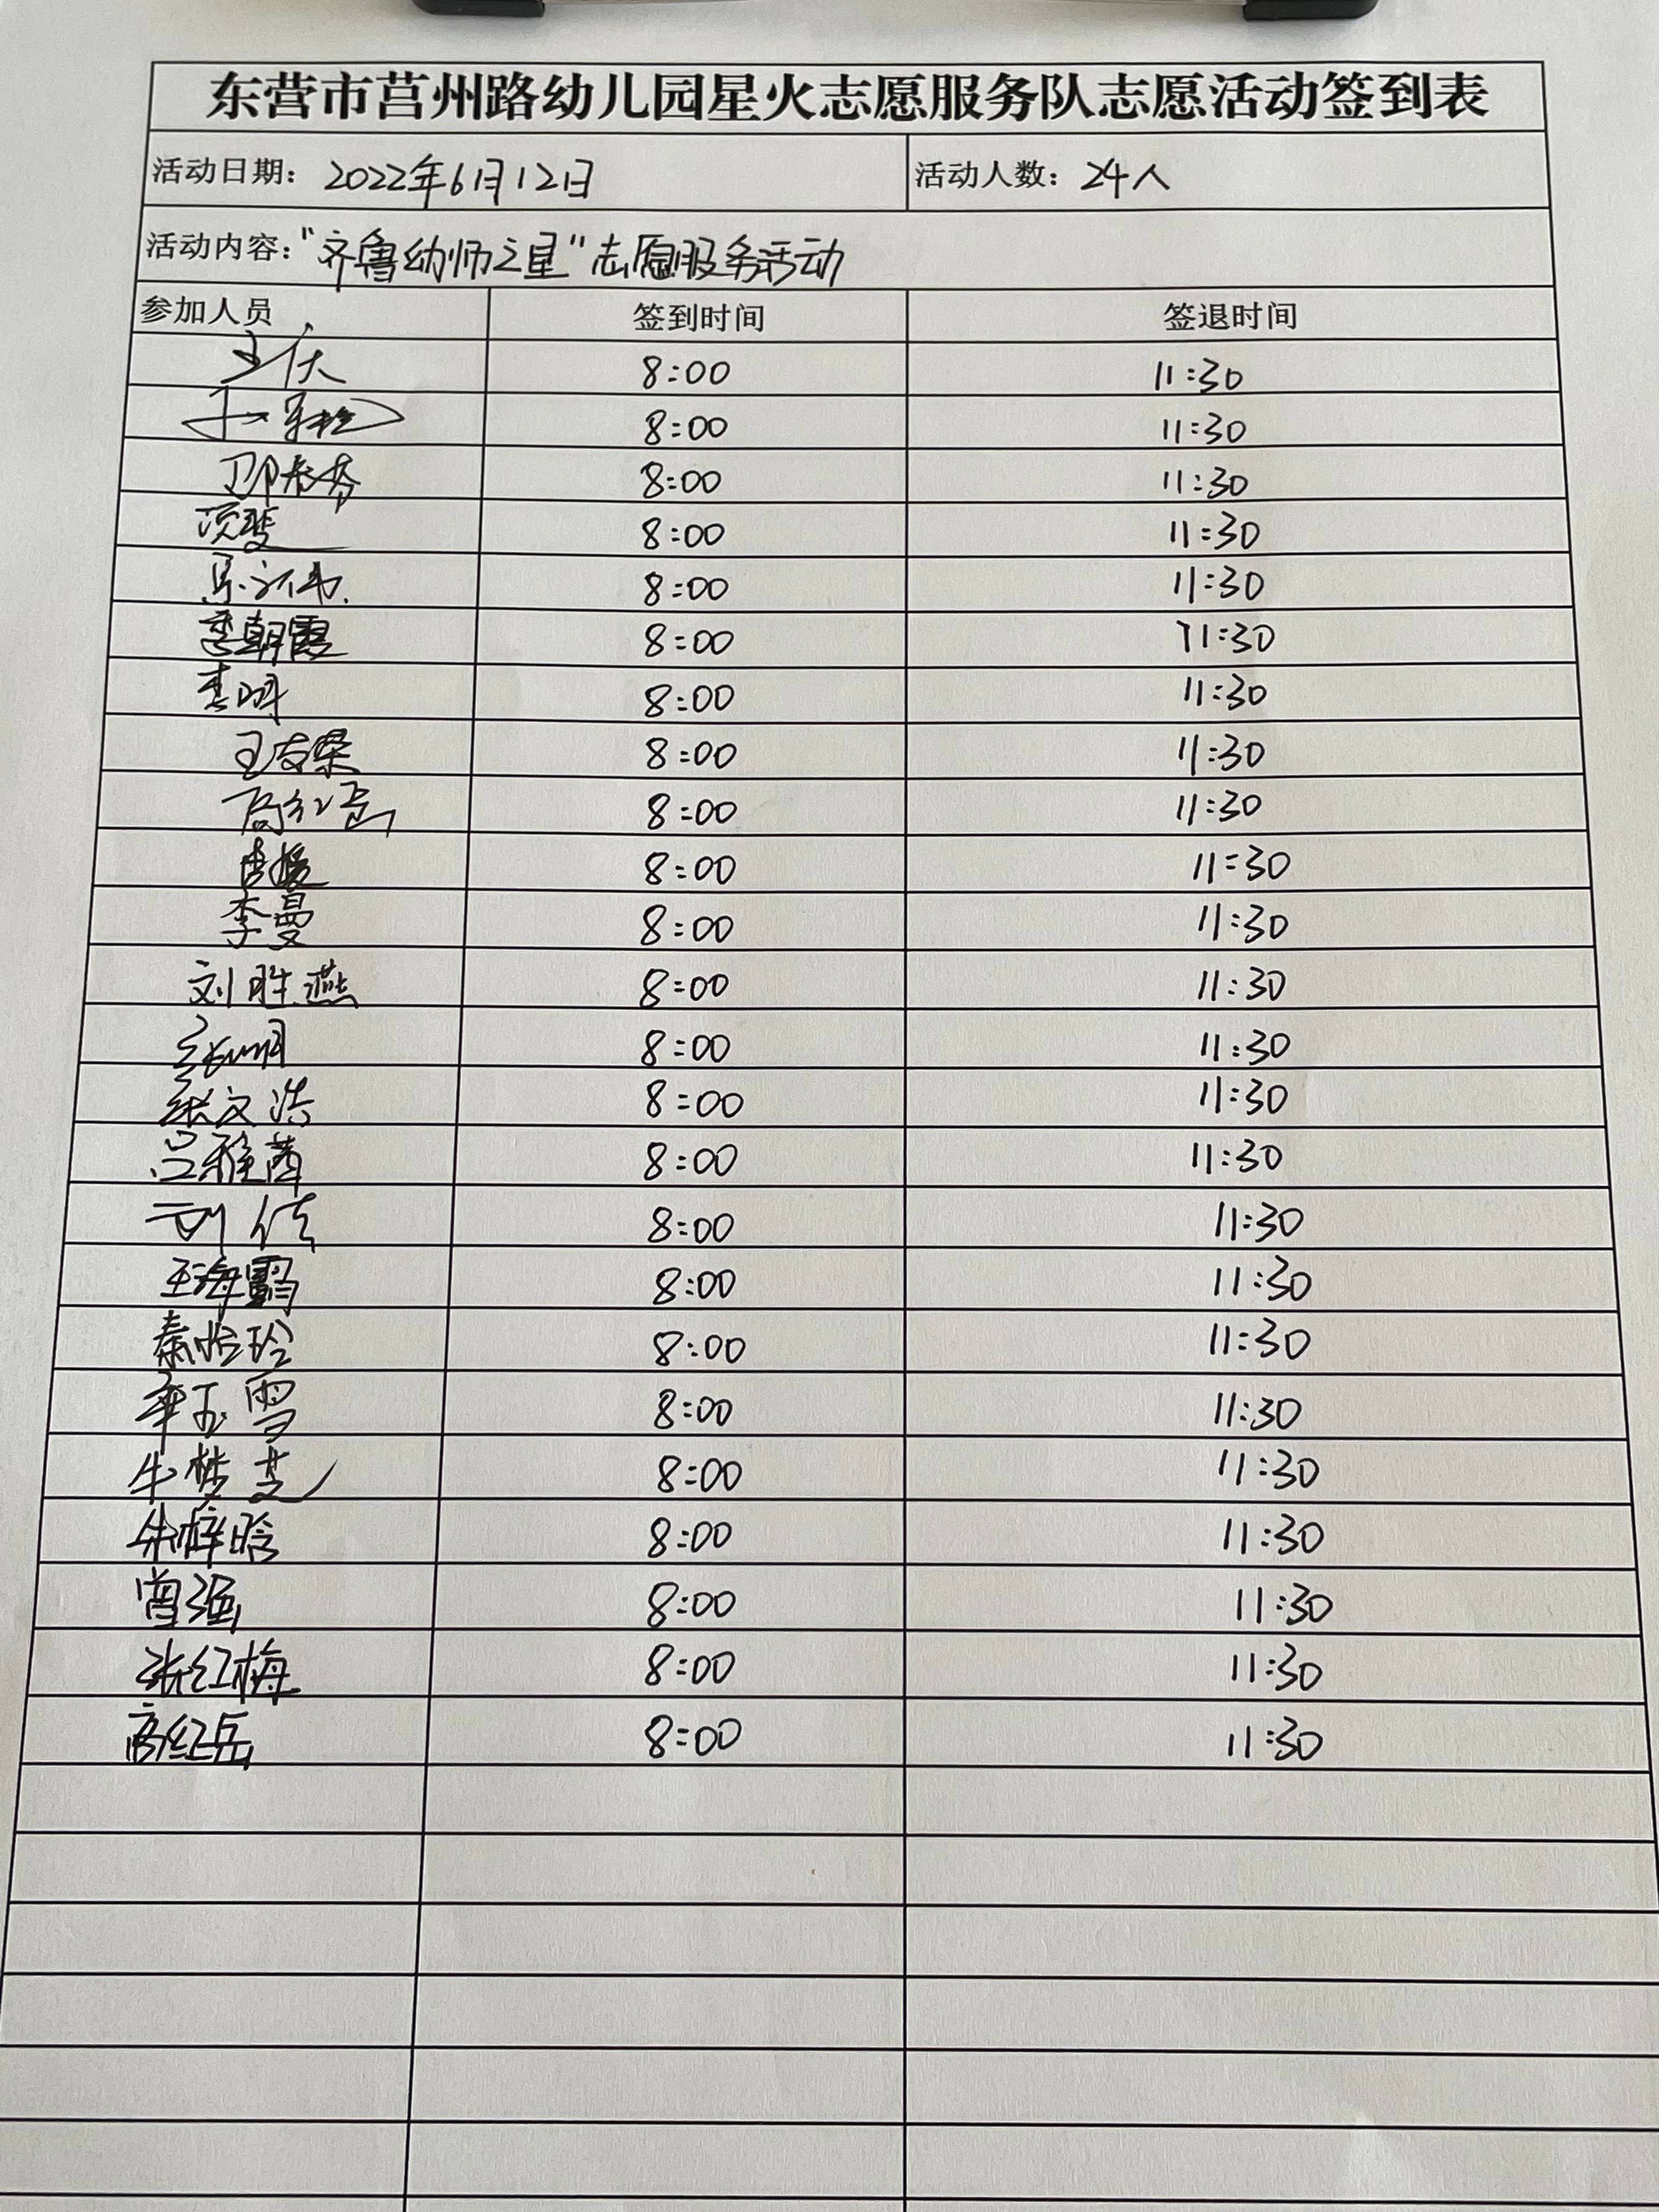 东营市莒州路幼儿园星火志愿服务队志愿活动签到表
活动日期：2022年6月12日 活动人数：24人
活动内容："齐鲁幼师之星"志愿服务活动
参加人员 签到时间 签退时间
8:00 11:30
8:00 11:30
8:00 11:30
项斐 8:00 11:30
8:00 11:30
李朝霞 8:00 11:30
李明 8:00 11:30
王友荣 8:00 11:30
8:00 11:30
8:00 11:30
李曼 8:00 11:30
刘胜燕 8:00 11:30
8:00 11:30
张文浩 8:00 11:30
吕雅茜 8:00 11:30
刘倩 8:00 11:30
王海霞 8:00 11:30
秦怡玲 8:00 11:30
8:00 11:30
牛梦芝 8:00 11:30
朱梓晗 8:00 11:30
曾强 8:00 11:30
张红梅 8:00 11:30
高红岳 8:00 11:30